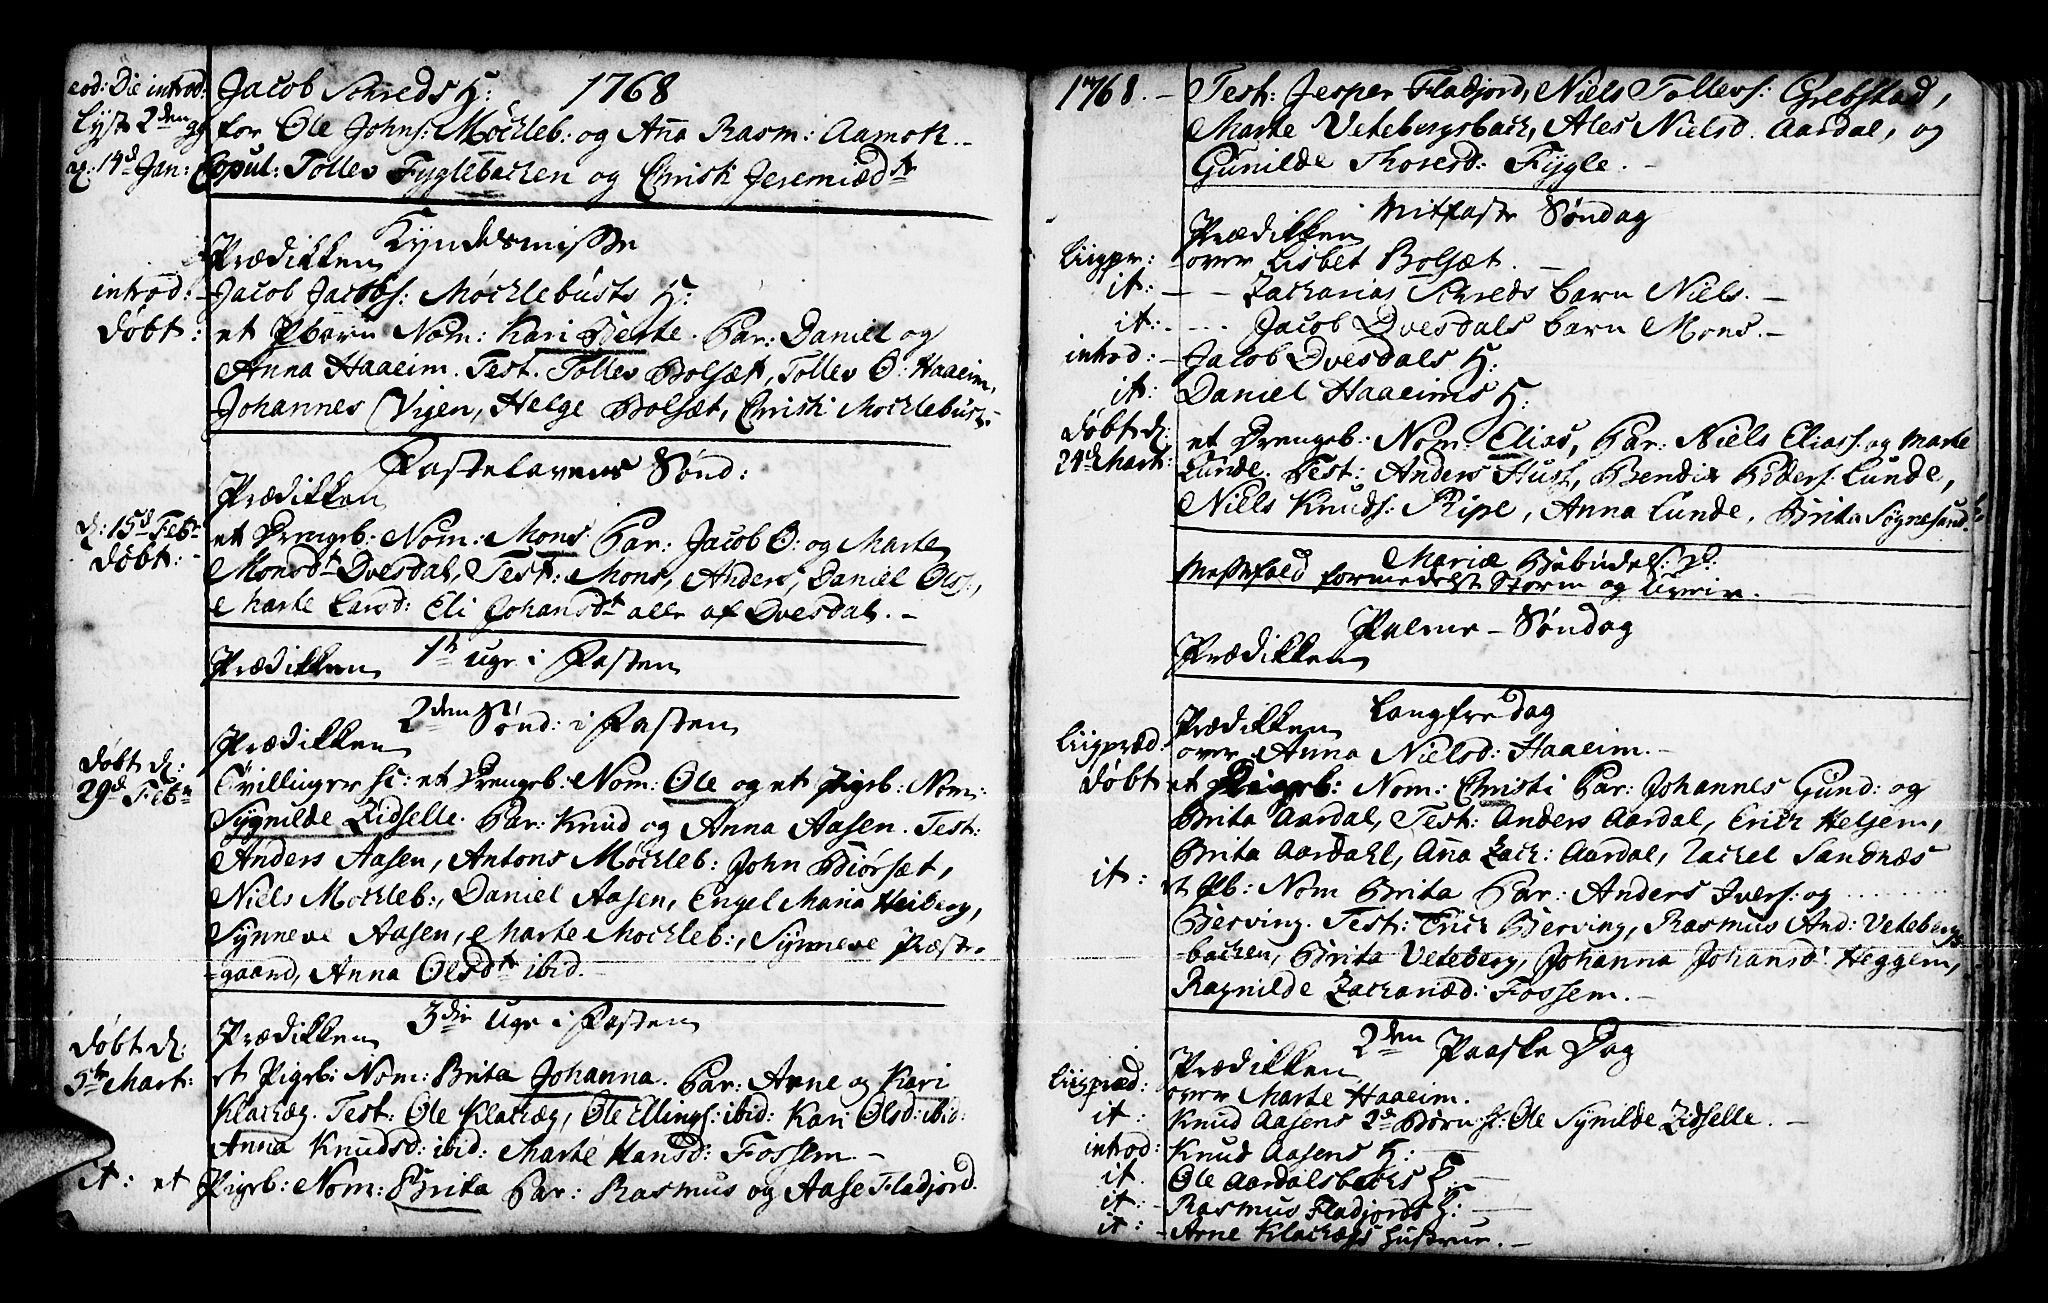 eod: Die introd: Jacob Schreds H: 1768
Lyst 2den gg for Ole Johns: Möckleb: og Aña Rasm: Aamot. -
d: 14d Jan: Copul: Tollev Fyglebacken og Christi Jeremiædtr
Kyndesmisse
Prædikken
introd: - Jacob Jacobs: Möcklebusts H:
döbt: et Pbarn Nom: Kari Berte. Par: Daniel og
Anna Haaeim. Test. Tollev Bolsæt, Tollev O: Haaeim,
Johannes Vigen, Helge Bolsæt, Christi Mocklebust. -
Fastelavens Sönd:
Prædikken
d: 15d Febr
döbt: - et Drengb: Nom: Mons Par: Jacob O: og Marte
Monsdtr Dvesdal, Test: Mons, Anders, Daniel Ols:,
Marte Larsd: Eli Johansdtr alle af Dvesdal. -
1te Uge i Fasten
Prædikken
2den Sönd: i Fasten
Prædikken
döbt d:
29d Febr
Tvillinger sc: et Drengeb: Nom: Ole og et Pigeb: Nom:
Sygnilde Zidselle. Par: Knud og Anna Aasen. Test:
Anders Aasen, Antons Möckleb: John Biörsæt,
Niels Möckleb:, Daniel Aasen, Engel Maria Heiberg,
Synneve Aasen, Marte Möckleb:, Synneve Præste-
-gaard, Anna Olsdtr ibid. -
3die Uge i Fasten
Prædikken
döbt d:
5te Mart:
et Pigeb: Nom: Brita Johanna. Par: Arne og Kari
Klackæg. Test: Ole Klackæg, Ole Ellings: ibid: Kari Olsd: ibid:
Anna Knudsd: ibid: Marte Hansd: Fossem. -
it: et Pigeb: Nom: Brita Par: Rasmus og Aase Fladjord.
1768. - Test: Jesper Fladjord, Niels Tollevs: Grebstad,
Marte Vetebergsback, Ales Nielsd. Aardal, og
Gunilde Thoresd: Fygle. -
Mitfaste Söndag
Prædikken
Liigpr: over Lisbet Bolsæt. -
it: - - Zacharias Schreds barn Niels. -
it: - ... Jacob Dvesdals barn Mons. -
introd: - Jacob Dvesdals H:
it: Daniel Haaeims H:
döbt d:
24d Mart: et Drengeb: Nom: Elias, Par: Niels Elias: og Marte
Lunde. Test: Anders Hust, Bendix Peders: Lunde,
Niels Knuds: Ripe, Anna Lunde, Brita Sögnesand.
Mariæ Bebudels: D:
Messefald formedelst Storm og Uveir. -
Palme - Söndag
Prædikken
Langfredag
Prædikken
Liigpræd: over Anna Nielsd: Haaeim. -
döbt et Pigeb: Nom: Christi Par: Johannes Gund: og
Brita Aardal, Test: Anders Aardal, Erich Helsem,
Brita Aardahl, Aña Zach: Aardal, Rachel Sandnæs
it: et Pb: Nom Brita Par: Anders Ivers: og .........
Bierving. Test: Erich Bierving, Rasmus And: Veteberg-
-backen, Brita Veteberg, Johanna Johansd: Heggem,
Ragnilde Zachariæd: Fossem. -
2den Paaske Dag
Prædikken
Liigpræd: over Marte Haaeim.
it: Knud Aasens 2de Börn sc: Ole Synilde Zidselle. -
introd: Knud Aasens H: -
it. Ole Aardalsbacks H: -
it: - Rasmus Fladjords H: -
it: - Arne Klackegs Hustrue. -